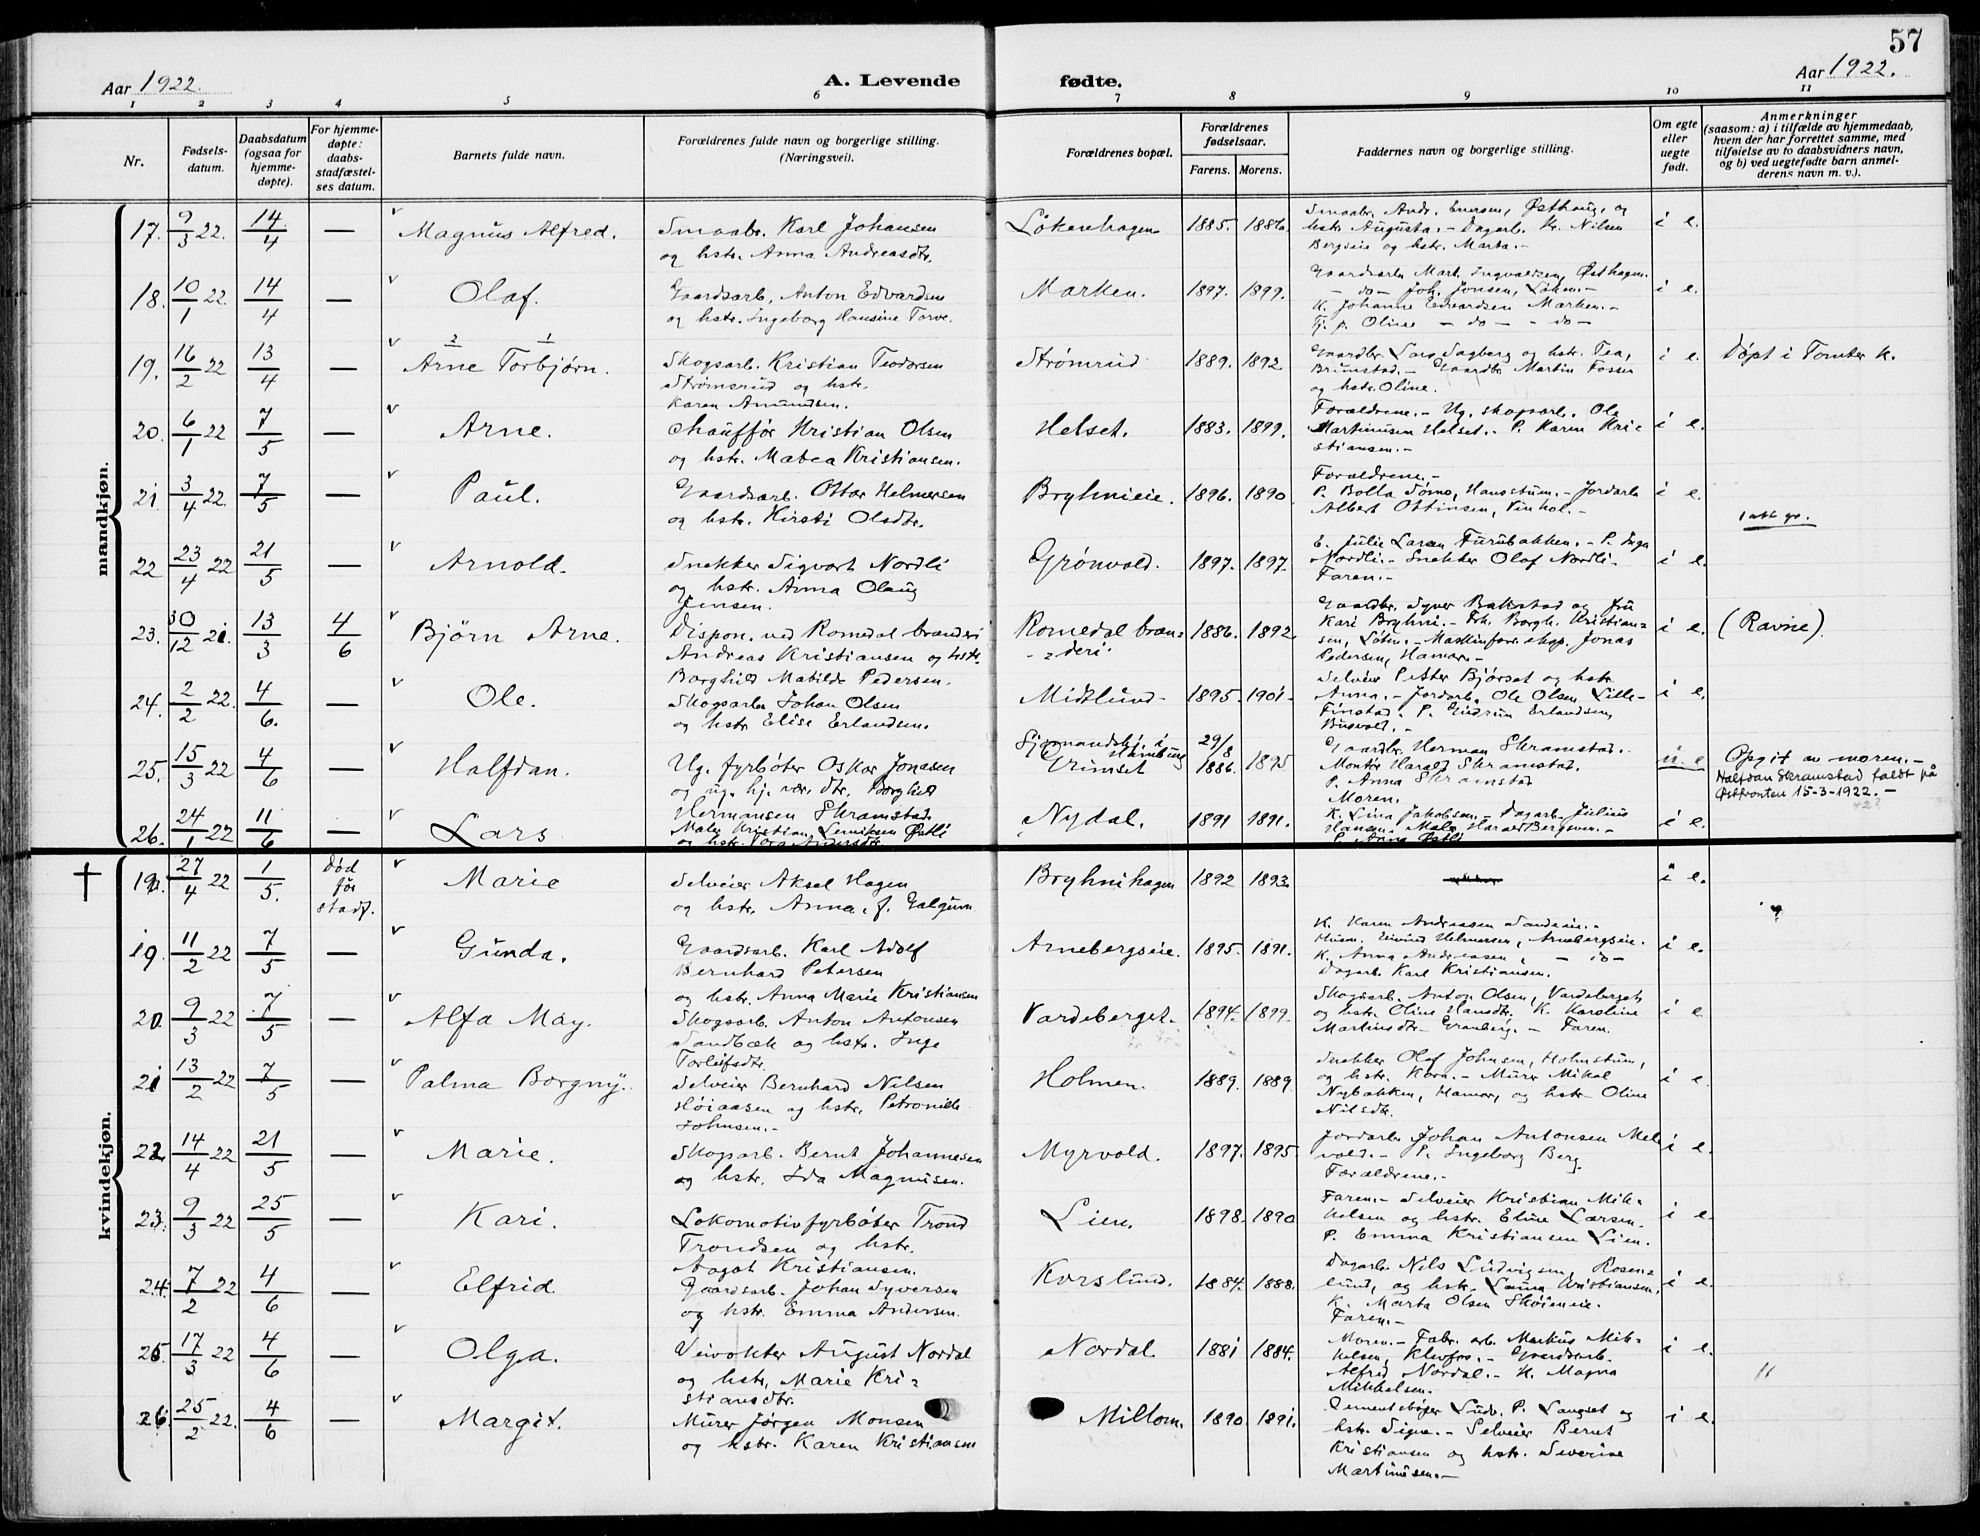 57
Aar 1922.
A. Levende fødte.
Aar 1922.
1 2 3 4 5 6 7 8 9 10 11
Nr.
Fødsels-
datum.
Daabsdatum
(ogsaa for
hjemme-
døpte).
For hjemme-
døpte:
daabs-
stadfæstel-
ses datum.
Barnets fulde navn.
Forældrenes fulde navn og borgerlige stilling.
(Næringsvei).
Forældrenes bopæl.
Forældrenes
fødselsaar.
Farens. Morens.
Faddernes navn og borgerlige stilling.
Om egte
eller
uegte
født.
Anmerkninger
(saasom: a) i tilfælde av hjemmedaab,
hvem der har forrettet samme, med
tilføielse av to daabsvidners navn,
og b) ved uegtefødte barn anmel-
derens navn m. v.).
mandkjøn.
17. 9/3 22. 14/4 — Magnus Alfred.
Smaabr. Karl Johansen
og hstr. Anna Andreasdtr.
Løkenhagen 1885. 1886.
Smaabr. Andr. Enersen, Østhaug, og
hstr Augusta. - Dagarb. Kr. Nilsen
Bergseie og hstr. Marta.-
i e.
18. 10/1 22. 14/4 — Olaf.
Gaardsarb. Anton Edvardsen
og hstr. Ingeborg Hansine Torve.
Marken. 1897. 1899.
Gaardsarb. Mart. Ingvaldsen, Østhagen.
— do — Joh. Jonsen, Løken.-
K. Johanne Edvardsen Marken.-
Tj. p. Oline — do — - do —
i e.
19. 16/2 22 13/4 — Arne Torbjørn.
2 1
Skogsarb. Kristian Teodorsen
Strømsrud og hstr.
Karen Amundsen.
Strømrud 1889. 1892
Gaardbr. Lars Dagberg og hstr. Tea,
Brunstad.- Gaardbr Martin Fossen
og hstr. Oline.
i e. Døpt i Tomter K.
20. 6/1 22 7/5 — Arne.
Chauffør Kristian Olsen
og hstr. Matea Kristiansen.
Helset. 1883. 1899.
Forældrene.- Ug. skogsarb. Ole
Martinusen Helset.- P. Karen Kri-
stiansen.-
i e.
21. 3/4 22. 7/5 — Paul.
Gaardsarb. Ottar Helmersen
og hstr. Kirsti Olsdtr.
Bryhnieie. 1896. 1890
Forældrene.-
P. Bolla Tømo, Hansstuen.- Jordarb
Albert Ottinsen, Vinhol.-
i e.
1 att gr.
22 23/4 22 21/5 — Arnold.
Snekker Sigvart Nordli
og hstr. Anna Olaug
Jensen.
Grønvold. 1897. 1897.
E. Julie Larsen Furubakken.- P. Inga
Nordli.- Snekker Olaf Nordli.
Faren.-
i e.
23. 30/12 21. 13/3 4/6 Bjørn Arne.
Dispon. ved Romedal brænderi
Andreas Kristiansen og hstr.
Borghild Matilde Pedersen.
Romedal bræn-
deri. 1886. 1892.
Gaardbr. Syver Bakstad og fru
Kari Bryhni.- Frk. Borgh. Kristian-
sen, Løten.- Maskinforr. eksp. Jonas
Pedersen, Hamar.-
i e. (Ravne).
24. 2/2 22. 4/6. — Ole.
Skogsarb Johan Olsen
og hstr Elise Erlandsen.
Midtlund. 1895. 1901.
Selveier Petter Bjørset og hstr
Anna.- Jordarb. Ole Olsen, Lille-
Finstad. P. Gudrun Erlandsen,
Busvold.-
i e.
25. 15/3 22 4/6 — Halfdan.
Ug. fyrbøter Oskar Jonasen
og ug. hj. vær. dtr. Borghild
Hermansen Skramstad.
Sjømandshj. i
Hamburg
Grimset 29/8 1886. 1895
Gaardbr. Herman Skramstad.
Montør Harald Skramstad.
P. Anna Skramstad
Moren.
u. e Opgit av moren.-
Halfdan Skramstad faldt på
Østfronten 15-3-1922.-
42?
26. 24/1 22 11/6 — Lars
Maler Kristian Leniksen Østli
og hstr. Tora Andersdtr.
Nydal. 1891 1891.
K. Lina Jakobsen - Dagarb. Julius
Hansen - Maler Harald Bergsven.-
P. Anna Østli
i e.
kvindekjøn.
† 19. 27/4 22 1/5. Død
før
stadf. Marie
Selveier Aksel Hagen
og hstr. Anna, f. Galgum
Bryhnihagen 1892 1893.
i e.
19 11/2 22 7/5 — Gunda.
Gaardsarb. Karl Adolf
Bernhard Petersen
og hstr. Anna Marie Kristiansen
Arnebergseie. 1895. 1891.
K. Karen Andreassen Sandeie.-
Husm. Eivind Helmersen, Arnebergseie.
K. Anna Andreasen, — do —
Dagarb. Karl Kristiansen.
i e.
20 9/3 22 7/5 — Alfa May.
Skogsarb. Anton Antonsen
Sandbæk og hstr. Inga
Torleifsdtr.
Vardeberget. 1894. 1899.
Skogsarb. Anton Olsen, Vardeberget,
og hstr Oline Hansdtr. K. Karoline
Martinsdtr Granberg.- Faren.
i e.
21 13/2 22 7/5 — Palma Borgny.
Selveier Bernhard Nilsen
Høiaasen og hstr. Petronille
Johnsen.-
Holmen. 1889. 1889
Snekker Olaf Johnsen, Holmstuen,
og hstr. Kora.- Murer Mikal
Nybakken, Hamar, og hstr Oline
Nilsdtr.
i e.
22 14/4 22 21/5 — Marie.
Skogsarb. Bernt Johannesen
og hstr. Ida Magnusen.
Myrvold. 1897. 1895.
Jordarb. Johan Antonsen Mel-
vold.- P. Ingeborg Berg.
Forældrene.-
i e.
23. 9/3 22 25/5 — Kari.
Lokomotivfyrbøter Trond
Trondsen og hstr.
Aagot Kristiansen.
Lien. 1898. 1890
Faren.- Selveier Kristian Mik-
kelsen og hstr. Eline Larsen.
P. Emma Kristiansen Lien.
i e.
24. 7/2 22 4/6 — Elfrid.
Gaardsarb. Johan Syversen
og hstr. Emma Andersen.
Korslund. 1884. 1888.
Dagarb. Nils Ludvigsen, Rosen-
lund, og hstr. Laura Kristiansen,
K. Marta Olsen Skøieneie.
Faren.-
i e.
25 17/3 22 4/6 — Olga.
Veivokter August Nordal
og hstr. Marie Kri-
stiansdtr.
Nordal. 1881 1884.
Moren.- Fabr. arb. Markus Mik-
kelsen, Klevfos.- Gaardsarb.
Alfred Nordal.- K. Magna
Mikkelsen.
i e.
26. 25/2 22. 4/6 — Margit.
Murer Jørgen Monsen
og hstr. Karen Kristiansen
Millom. 1890. 1891.
Cementstøper Ludv. P. Langset og
hstr. Signe.- Selveier Bernt
Kristiansen og hstr. Severine
Martinisen.-
i e.